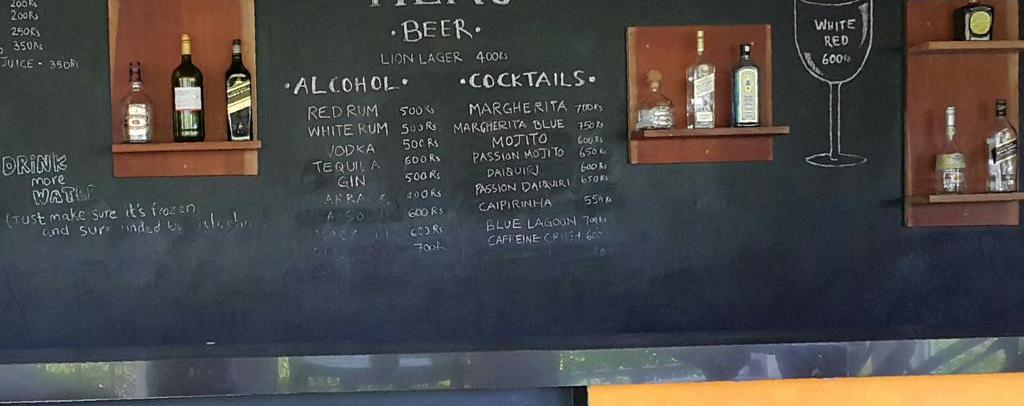 200Rs
200Rs
250Rs
350Rs
JUICE - 350Rs
MENU
·BEER·
LION LAGER 400Rs
·ALCOHOL·
RED RUM 500Rs
WHITE RUM 500Rs
VODKA 500Rs
TEQUILA 600Rs
GIN 500Rs
600Rs
600Rs
700Rs
·COCKTAILS·
MARGHERITA 700Rs
MARGHERITA BLUE 750Rs
MOJITO 600Rs
PASSION MOJITO 650Rs
DAIQUIRI 600Rs
PASSION DAIQUIRI 650Rs
CAIPIRINHA 550Rs
BLUE LAGOON 700Rs
CAFFEINE CRUSH 600
WHITE
RED
600Rs
DRINK
more
WATER
(Just make sure it's frozen
and surrounded by